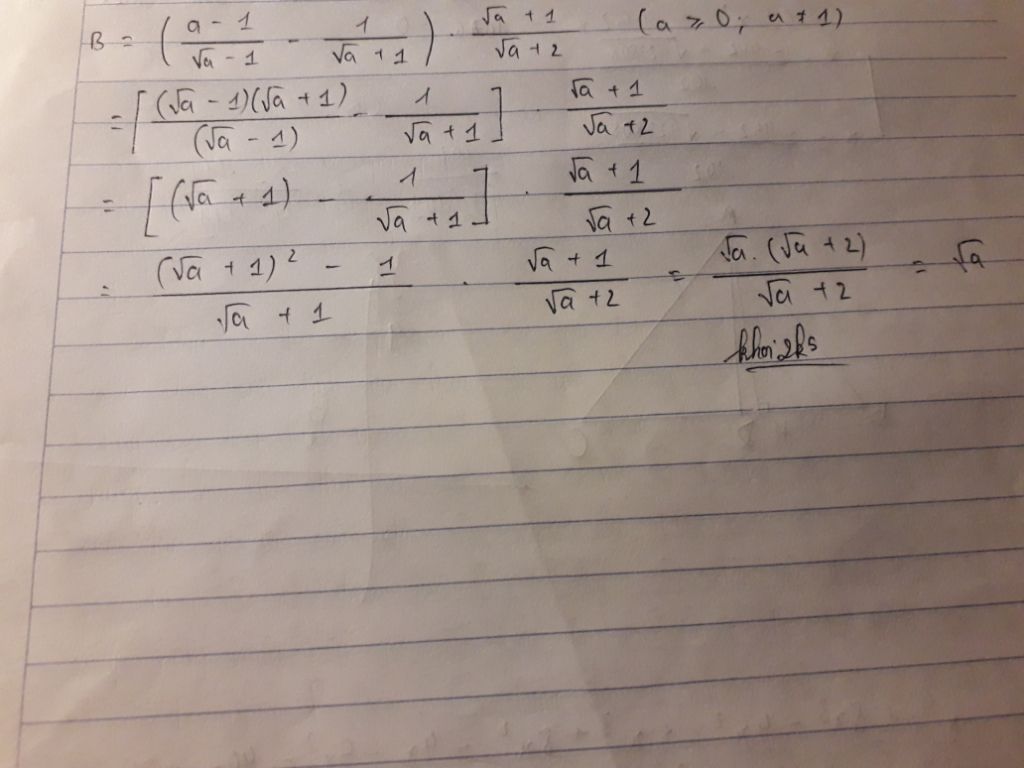 B = ( \frac{a - 1}{\sqrt{a} - 1} - \frac{1}{\sqrt{a} + 1} ) . \frac{\sqrt{a} + 1}{\sqrt{a} + 2} (a ≥ 0; a ≠ 1)
= [ \frac{(\sqrt{a} - 1)(\sqrt{a} + 1)}{(\sqrt{a} - 1)} - \frac{1}{\sqrt{a} + 1} ] . \frac{\sqrt{a} + 1}{\sqrt{a} + 2}
= [ (\sqrt{a} + 1) - \frac{1}{\sqrt{a} + 1} ] . \frac{\sqrt{a} + 1}{\sqrt{a} + 2}
= \frac{(\sqrt{a} + 1)^2 - 1}{\sqrt{a} + 1} . \frac{\sqrt{a} + 1}{\sqrt{a} + 2} = \frac{\sqrt{a} . (\sqrt{a} + 2)}{\sqrt{a} + 2} = \sqrt{a}
khoi2k5